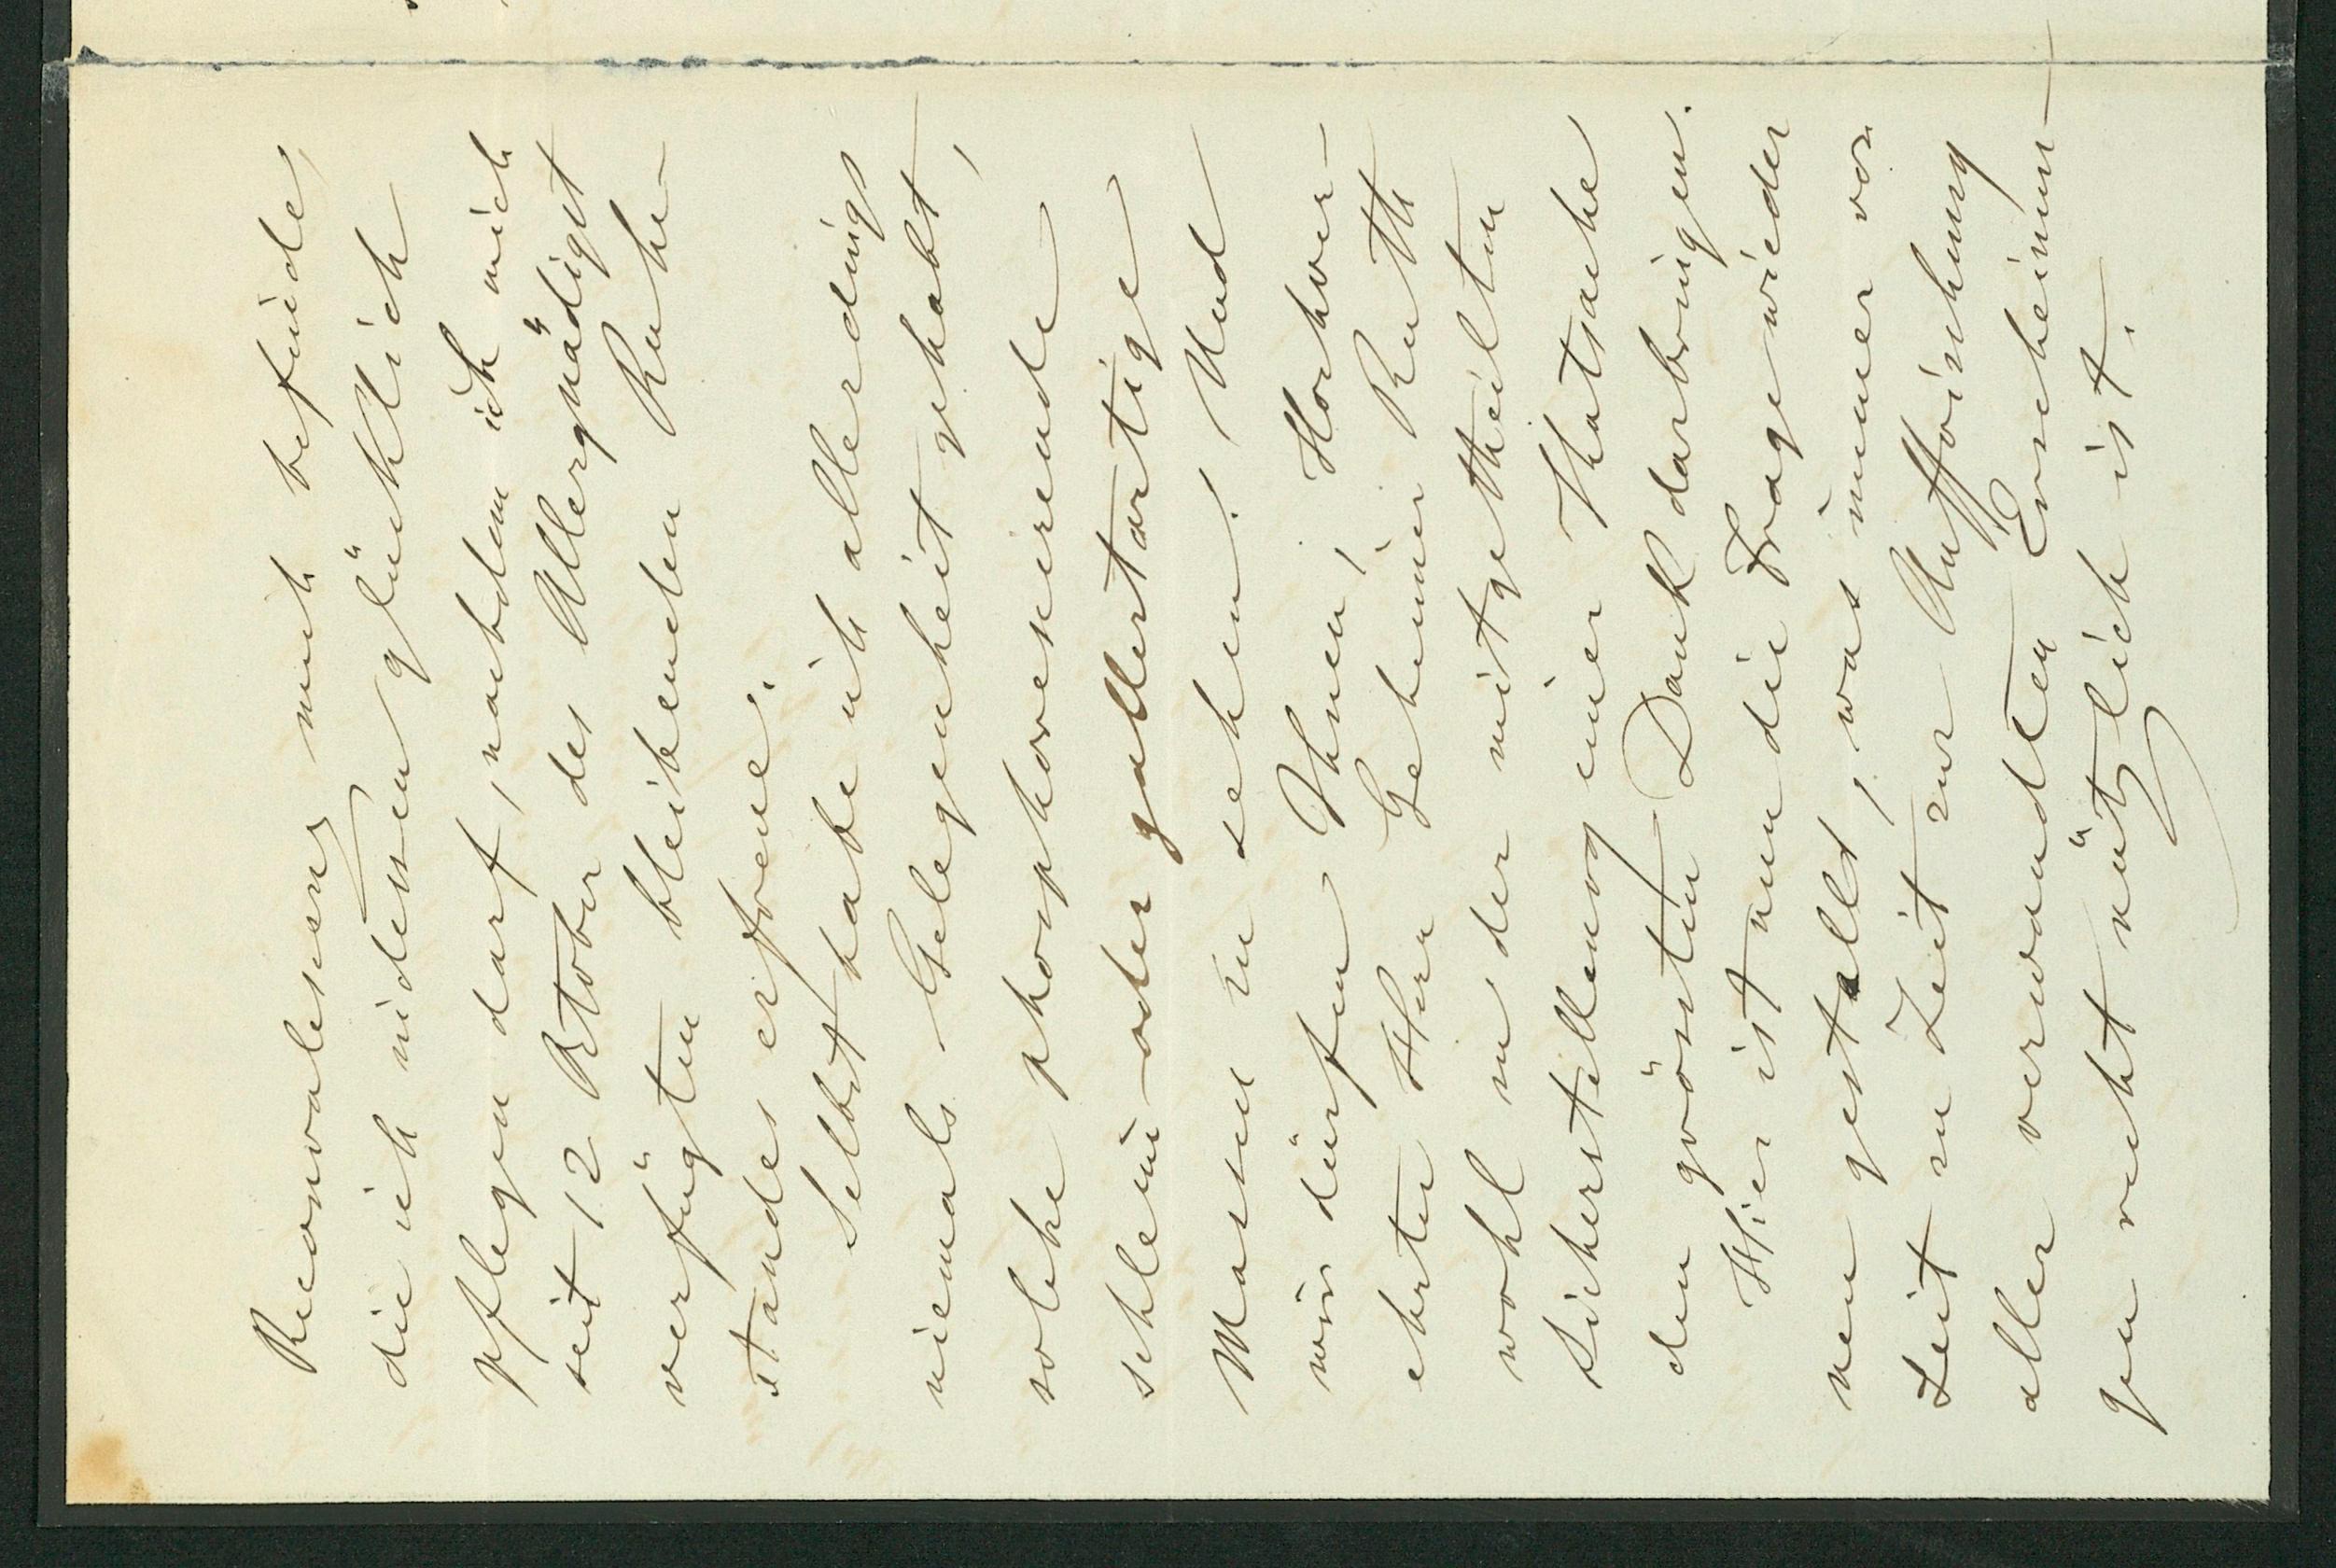 Reconvalescenz mich befinde,
die ich indessen glücklich
pflegen darf, nachdem ich mich
seit 12 October des Allergnädigst
verfügten bleibenden Ruhe-
standes erfreue.
Selbst habe ich allerdings
niemals Gelegenheit gehabt,
solche phosphorescirende
schleim- oder gallertartige
Massen zu sehen! Und
wir dürfen Ihnen, Hochver-
ehrter Herr Geheimer Rath
wohl zu der mitgetheilten
Sicherstellung einer Thatsache
den grössten Dank darbringen.
Hier ist nun die Frage wieder
neu gestellt, was immer von
Zeit zu Zeit zur Auffrischung
aller verwandten Erscheinun-
gen recht nützlich ist.